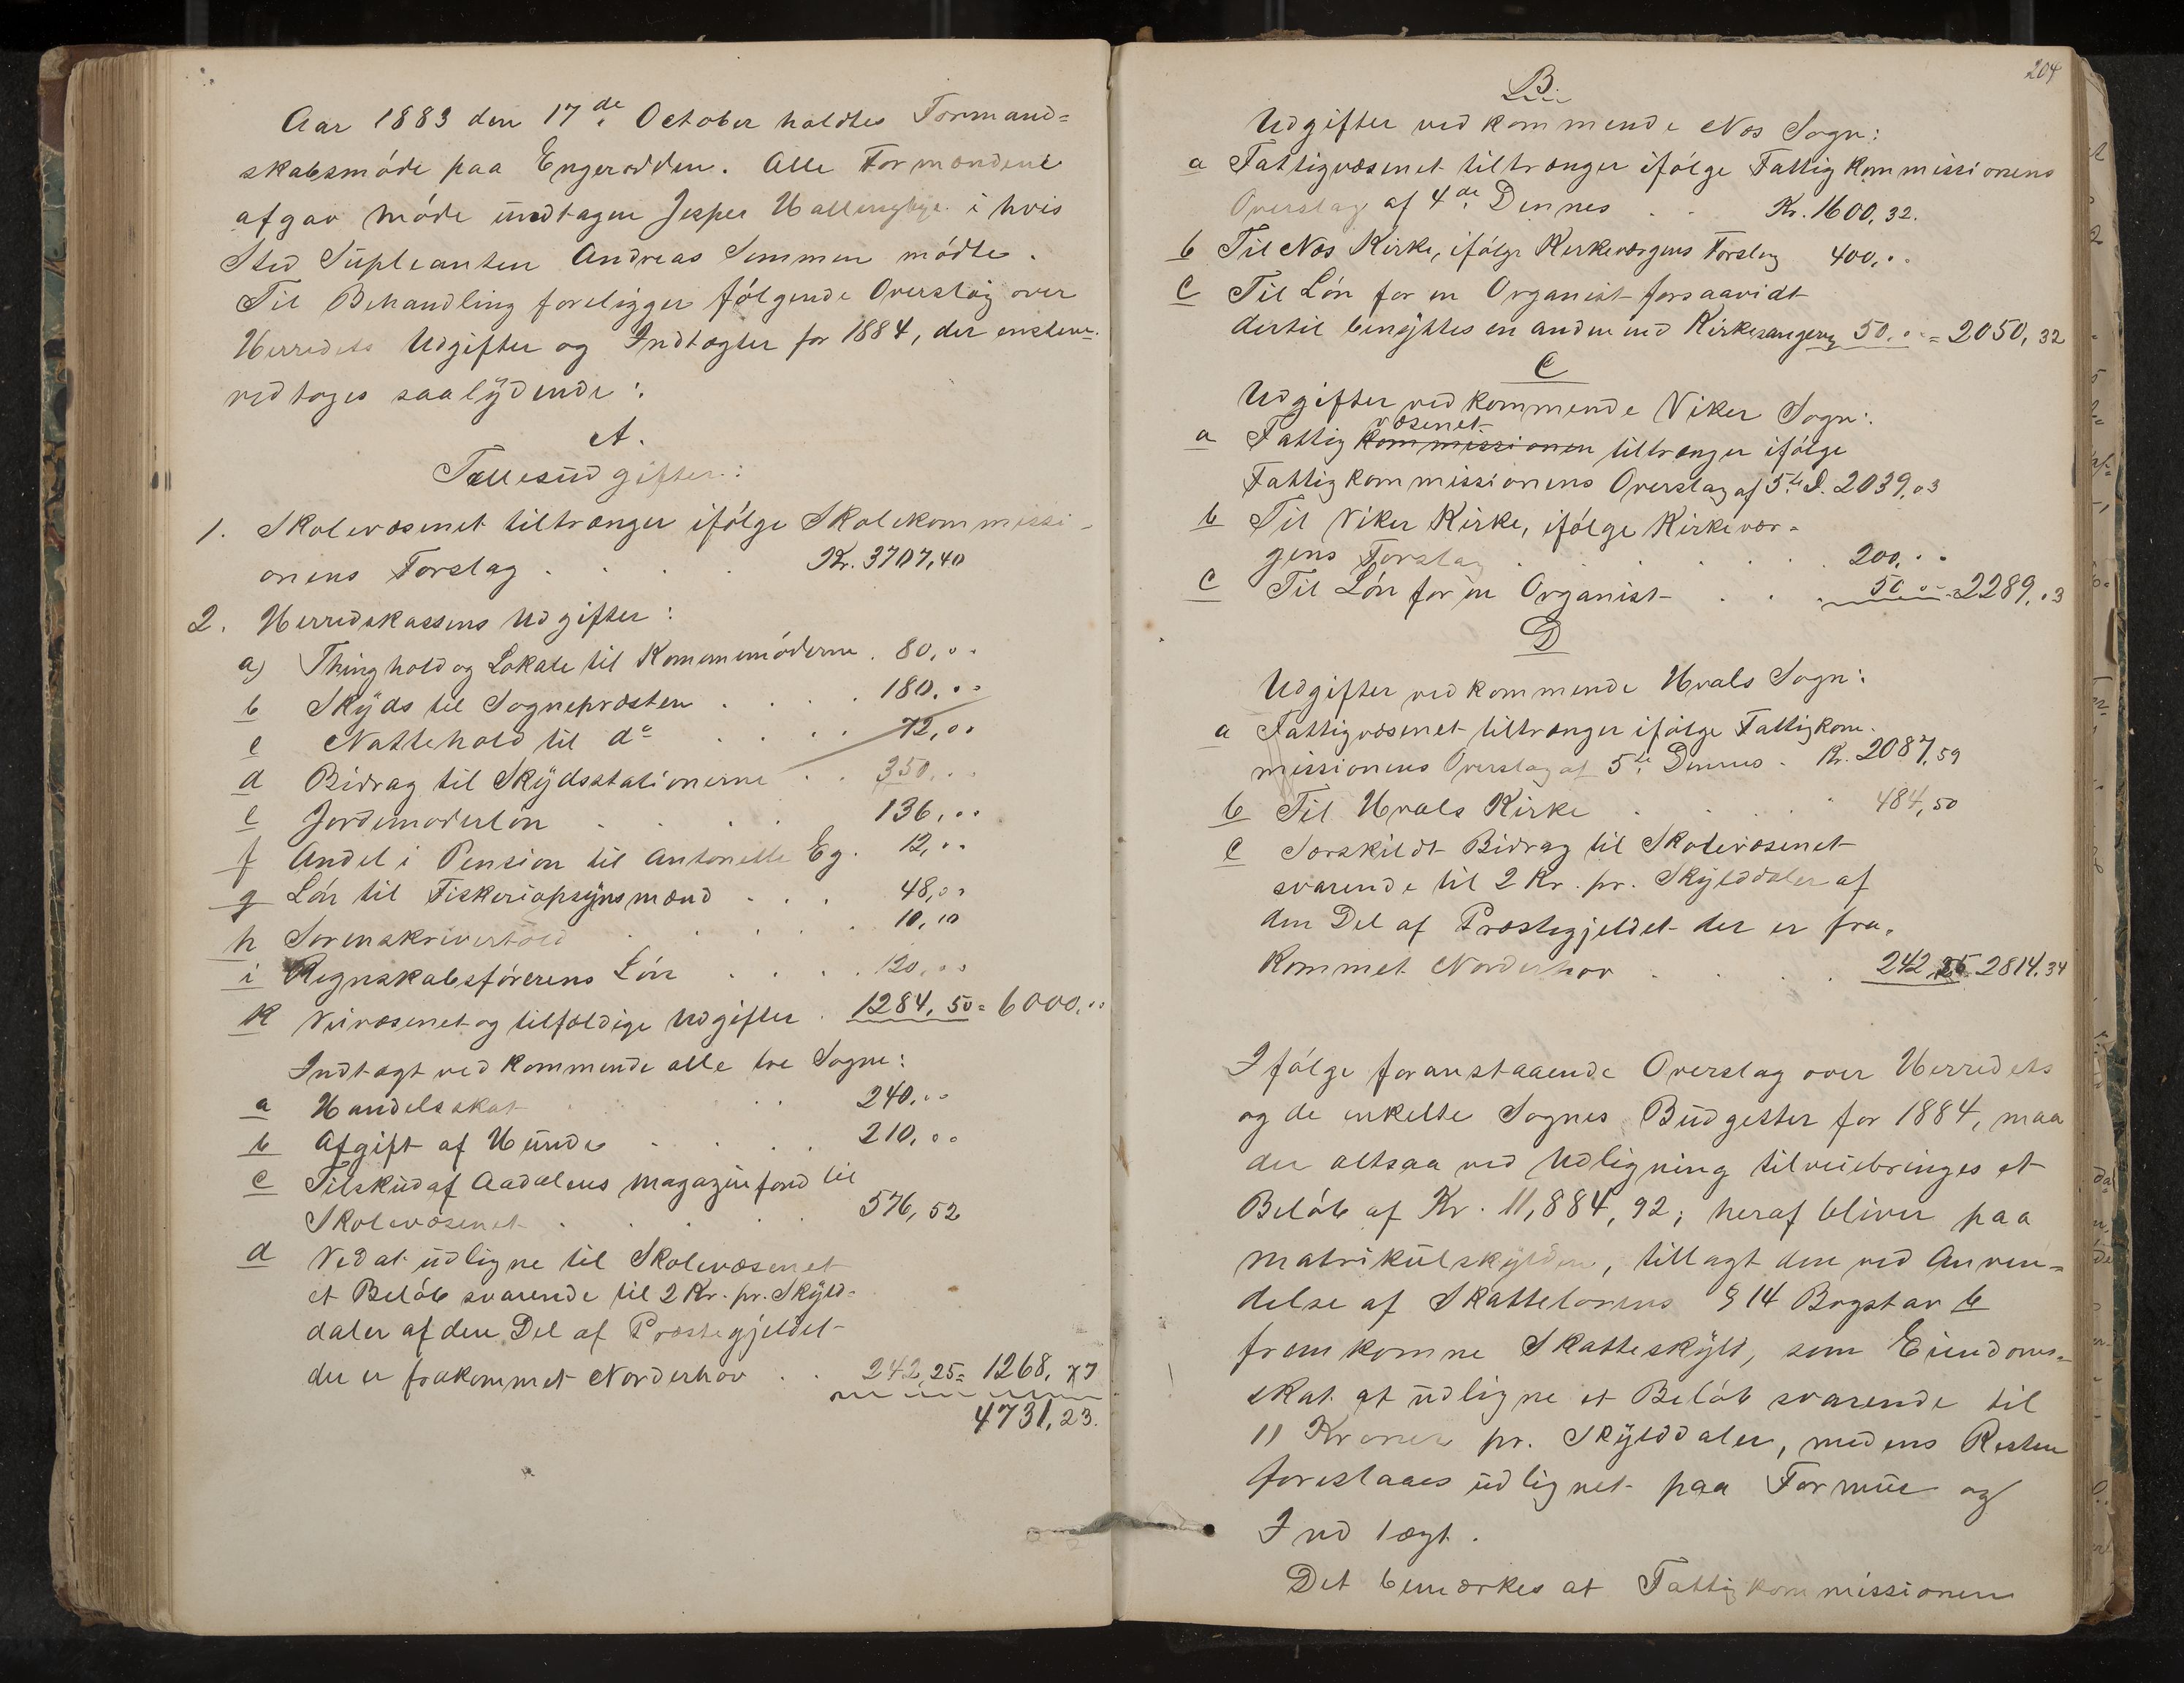 Aar 1883 den 17de October holdtes Formand=
skabsmøde paa Engerodden. Alle Formændene
afgav Møde undtagen Jesper Hallingbye i hvis
Sted Supleanten Andreas Semmen mødte.
Til Behandling foreligger følgende Overslag over
Herredets Udgifter og Indtægter for 1884, der enstem.
vedtoges saalydende:
A.
Fællesudgifter:
1. Skolevæsenet tiltrænger ifølge Skolekommissi-
onens Forslag . . . . Kr. 3707,40
2. Herredskassens Udgifter:
a) Thinghold og Lokale til Kommunemøderne . 80,00
b Skyds til Sognepræsten . . . . 180,00
c Nattehold til do . . . . 72,00
d Bidrag til Skydsstationerne . . 350,00
e Jordemoderløn . . . . 136,00
f Andel i Pension til Antonette Eg. 12,00
g Løn til Fiskeriopsynsmænd . . . 48,00
h Sorenskrivertold . . . . . 10,10
i Regnskabsførerens Løn . . . . 120,00
k Veivæsenet og tilfældige Udgifter . 1284,50 = 6000,00
Indtægt vedkommende alle tre Sogne:
a Handelsskat . . . 240,00
b Afgift af Hunde . . . 210,00
c Tilskud af Aadalens Magazinfond til
Skolevæsenet . . . . 576,52
d Ved at udligne til Skolevæsenet
et Beløb svarende til 2 Kr. pr. Skyld-
daler af den Del af Præstegjeldet
der er frakommet Norderhov . . 242,25 = 1268,77
4731,23.
204
B.
Udgifter vedkommende Næs Sogn:
a Fattigvæsenet tiltrænger ifølge Fattigkommissionens
Overslag af 4de Dennes . . Kr. 1600,32.
b Til Næs Kirke, ifølge Kirkeværgens Forslag 400,00
c Til Løn for en Organist forsaavidt
dertil benyttes en anden end Kirkesangeren 50,00 = 2050,32
C
Udgifter vedkommende Viker Sogn:
væsenet
a Fattigkommissionen tiltrænger ifølge
Fattigkommissionens Overslag af 5te d. 2039,03
b Til Viker Kirke, ifølge Kirkevær-
gens Forslag . . . . . . 200,00
c Til Løn for en Organist . . . 50,00 = 2289,03
D
Udgifter vedkommende Hvals Sogn:
a Fattigvæsenet tiltrænger ifølge Fattigkom-
missionens Overslag af 5te Dennes . Kr. 2087,59
b Til Hvals Kirke . . . . 484,50
c Særskildt Bidrag til Skolevæsenet
svarende til 2 Kr. pr. Skylddaler af
den Del af Præstegjeldet der er fra-
kommet Norderhov . . . . 242,25 2814,34
Ifølge foranstaaende Overslag over Herredets
og de enkelte Sognes Budgetter for 1884, maa
der altsaa ved Udligning tilveiebringes et
Beløb af Kr. 11,884,92; heraf bliver paa
Matrikulskylden, tillagt den ved Anven=
delse af Skattelovens § 14 Bogstav b
fremkomne Skatteskyld, som Eiendoms=
skat at udligne et Beløb svarende til
11 Kroner pr. Skylddaler, medens Resten
foreslaaes udlignet paa Formue og
Indtægt.
Det bemærkes at Fattigkommissionen